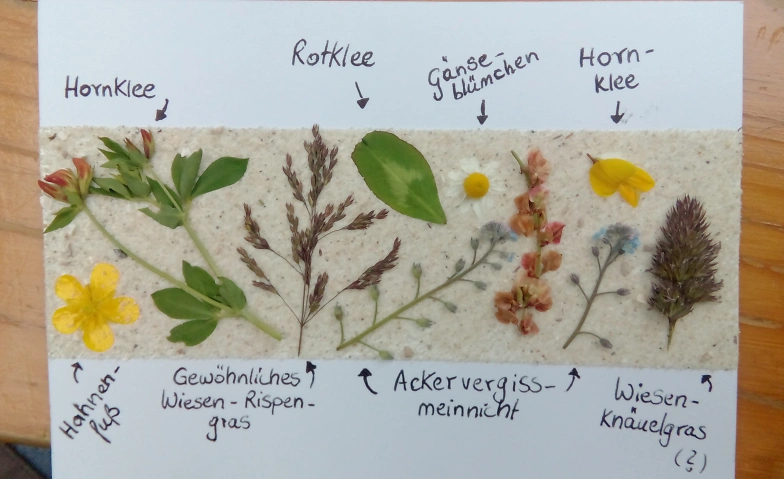 Hornklee
Rotklee
Gänse-
blümchen
Horn-
klee
Hahnen-
fuß
Gewöhnliches
Wiesen-Rispen-
gras
Ackervergiss-
meinnicht
Wiesen-
Knäuelgras
(?)